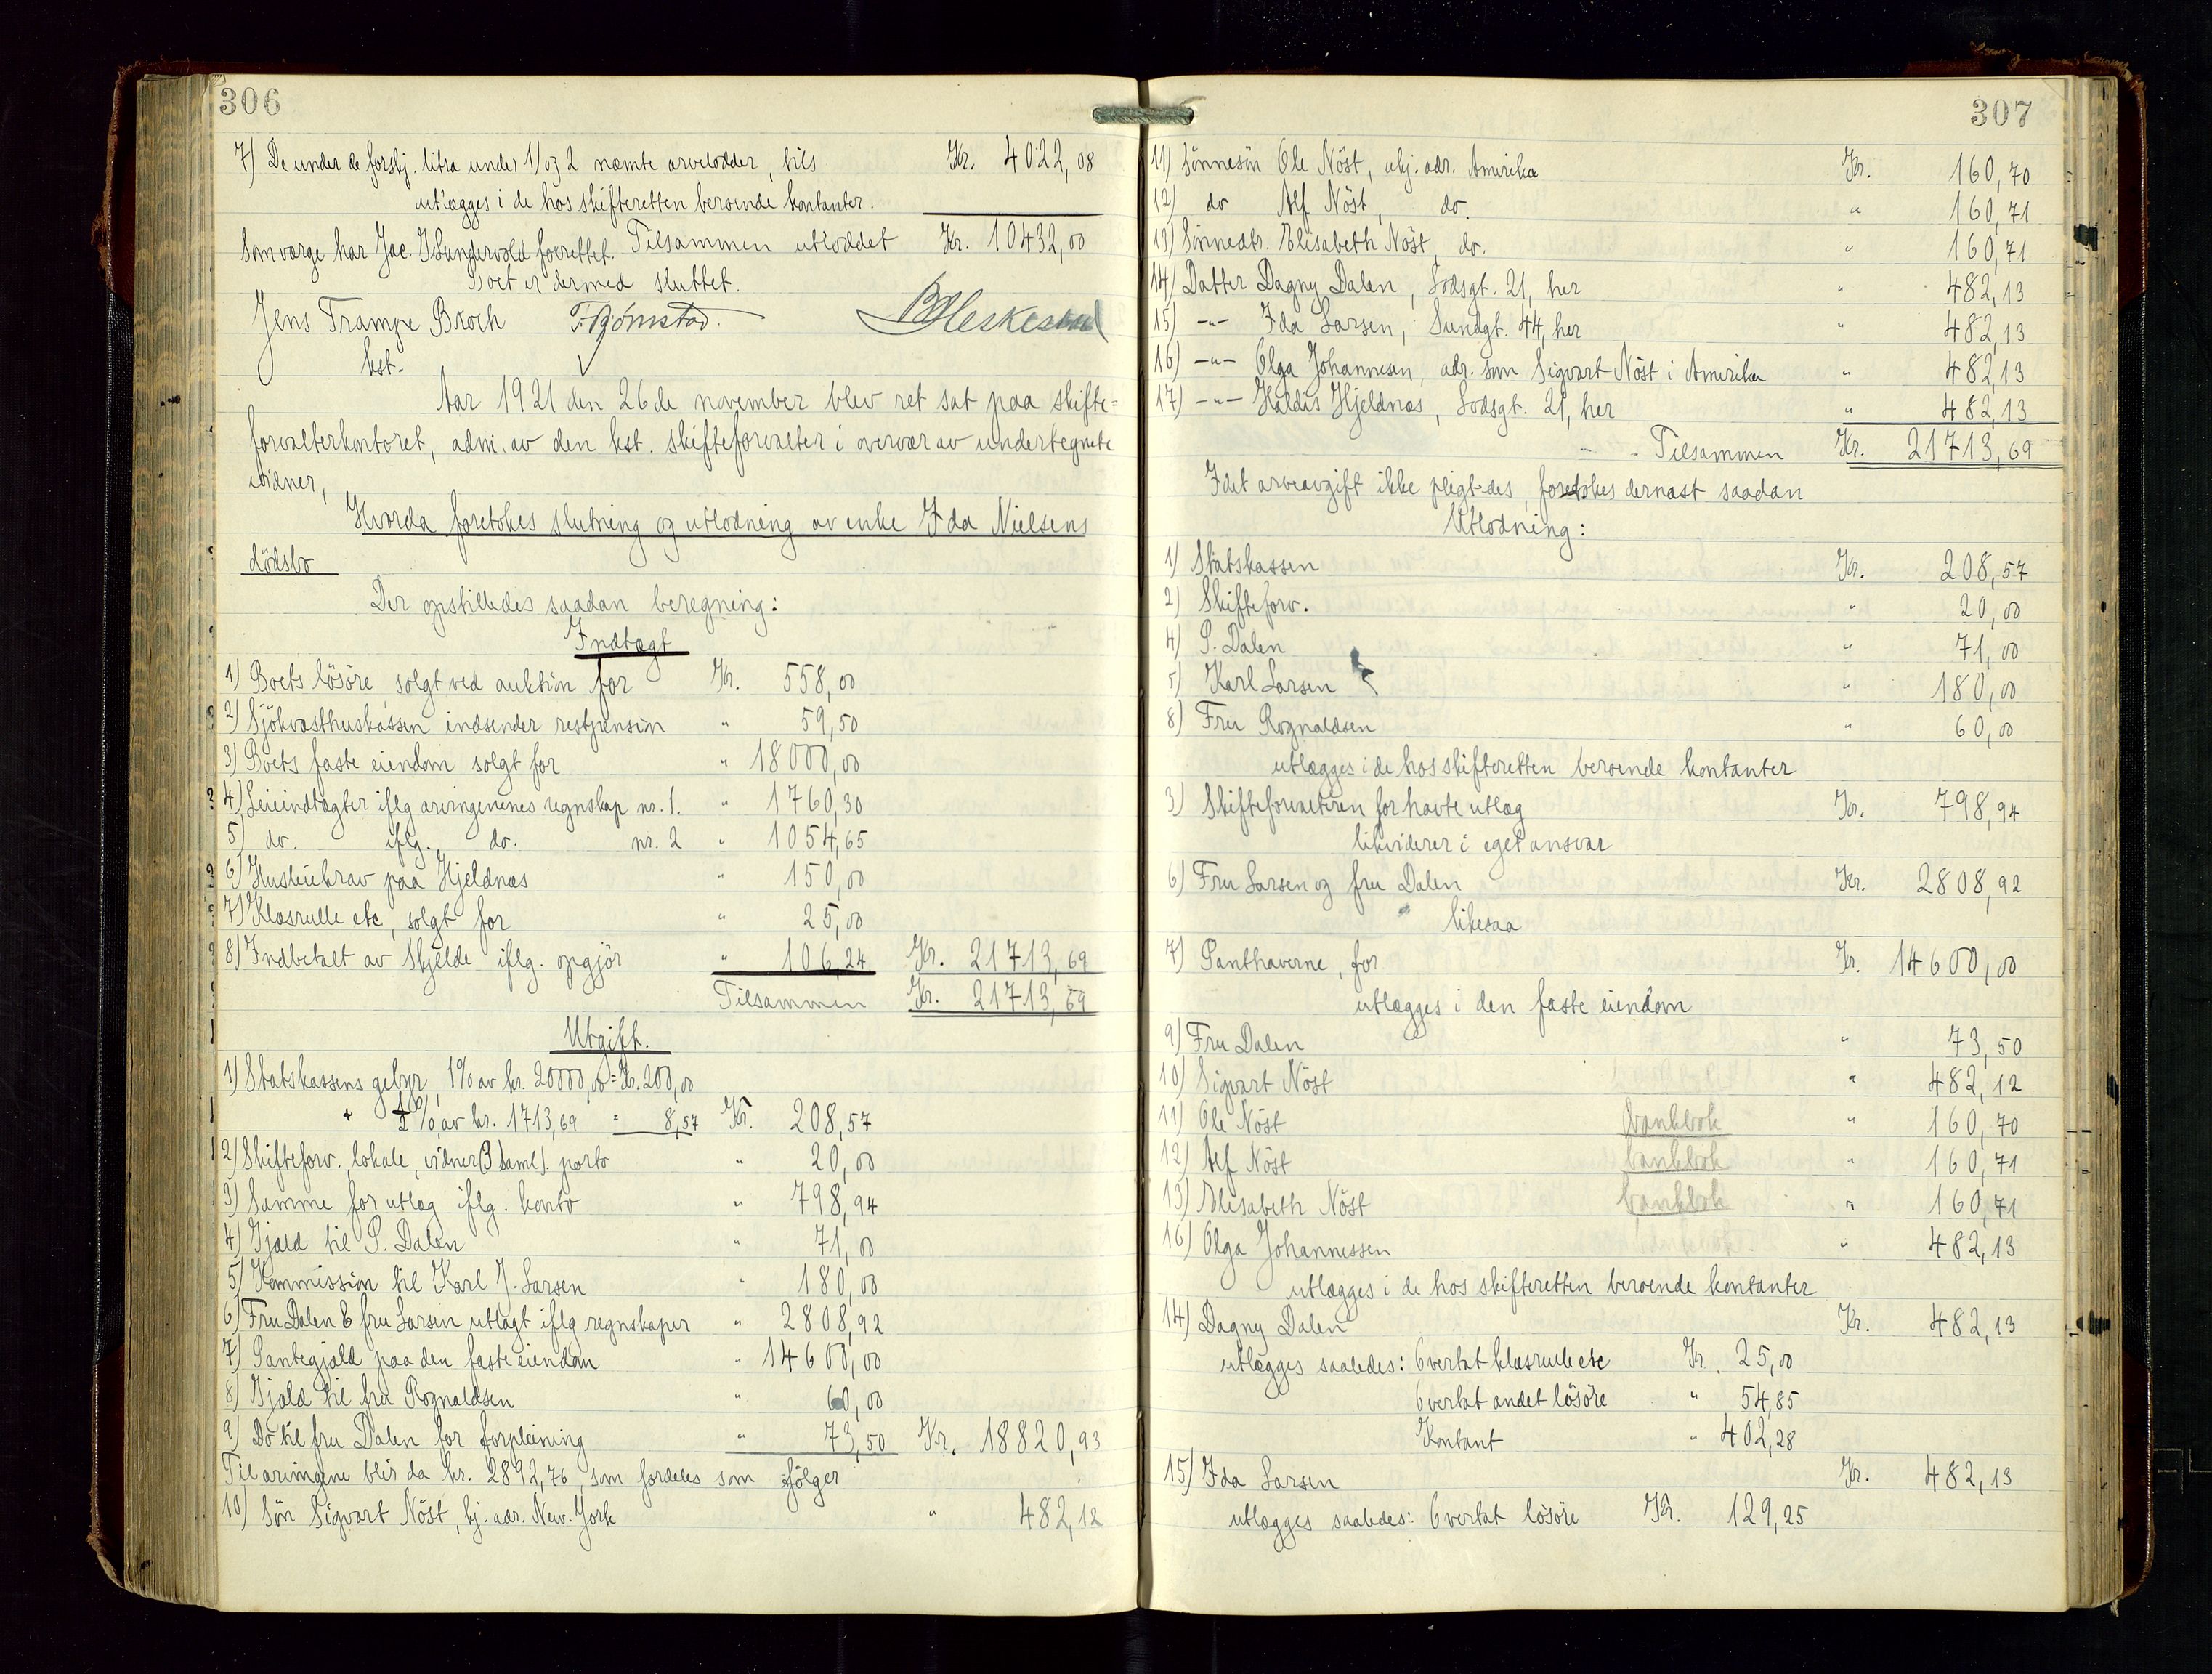 306
7) De under de forskj. litra under 1) og 2 nævnte arvelodder, tils Kr. 4022,08
utlægges i de hos skifteretten beroende kontanter.
Som værge har Jac. Sundervold forrettet. Tilsammen utloddet Kr. 10432,00
Boet er dermed sluttet.
Jens Trampe Broch T. Bjørnstad. B Heskestad
kst.
Aar 1921 den 26de november blev ret sat paa skifte-
forvalterkontoret, adm. av den kst. skifteforvalter i overvær av undertegnete
vidner,
Hvorda foretokes slutning og utlodning av enke Ida Nielsens
dödsbo
Der opstilledes saadan beregning:
Indtægt
1) Boets lösöre solgt ved auktion for Kr. 558,00
2) Sjökvæsthuskassen indsender restpension " 59,50
3) Boets faste eiendom solgt for " 18000,00
4) Leieindtægter iflg arvingenenes regnskap nr. 1. " 1760,30
5) do. iflg. do. nr. 2 " 1054,65
6) Husleiekrav paa Hjeldnæs " 150,00
7) Klæsrulle etc, solgt for " 25,00
8) Indbetalt av Skjelde iflg. opgjör " 106,24 Kr. 21713,69
Tilsammen Kr. 21713,69
Utgift.
1) Statskassens gebyr, 1% av kr. 20000,00 = Kr. 200,00
+ ½%, av kr. 1713,69 = 8,57 Kr. 208,57
2) Skifteforv. lokale, vidner (3 saml). porto " 20,00
3) Samme for utlæg iflg. konto " 798,94
4) Gjæld til S. Dalen " 71,00
5) Kommission til Karl J. Larsen " 180,00
6) Fru Dalen & fru Larsen utlagt iflg regnskaper " 2808,92
7) Pantegjæld paa den faste eiendom " 14600,00
8) Gjæld til fru Rognaldsen " 60,00
9) Do til fru Dalen for forpleining " 73,50 Kr. 18820,93
Til arvingene blir da kr. 2892,76, som fordeles som fölger
10) Sön Sigvart Nöst, bj. adr. New. York " 482,12
307
11) Sönnesön Ole Nöst, ukj. adr. Amerika Kr. 160,70
12) do Alf Nöst, do. " 160,71
13) Sönnedtr. Elisabeth Nöst, do. " 160,71
14) Datter Dagny Dalen, Lodsgt. 21, her " 482,13
15) -"- Ida Larsen, Sundgt. 44, her " 482,13
16) -"- Olga Johannesen, adr. som Sigvart Nöst i Amerika " 482,13
17) -"- Haldis Hjeldnæs, Lodsgt. 21, her " 482,13
Tilsammen Kr. 21713,69
Idet arveavgift ikke pligtdes, foretokes dernæst saadan
Utlodning:
1) Statskassen Kr. 208,57
2) Skifteforv. " 20,00
4) S. Dalen " 71,00
5) Karl Larsen " 180,00
8) Fru Rognaldsen " 60,00
utlægges i de hos skifteretten beroende kontanter
3) Skifteforvalteren for havte utlæg Kr. 798,94
likviderer i eget ansvar
6) Fru Larsen og fru Dalen Kr. 2808,92
" likesaa
7) Panthaverne, for Kr. 14600,00
utlægges i den faste eiendom
9) Fru Dalen " 73,50
10) Sigvart Nöst " 482,12
11) Ole Nöst bankbok " 160,70
12) Alf Nöst bankbok " 160,71
13) Elisabeth Nöst bankbok " 160,71
16) Olga Johannessen " 482,13
utlægges i de hos skifteretten beroende kontanter
14) Dagny Dalen Kr. 482,13
utlægges saaledes: Overtat klæsrulle etc Kr. 25,00
Overtat andet lösöre " 54,85
Kontant " 402,28
15) Ida Larsen Kr. 482,13
utlægges saaledes: Overtat lösöre Kr. 129,25